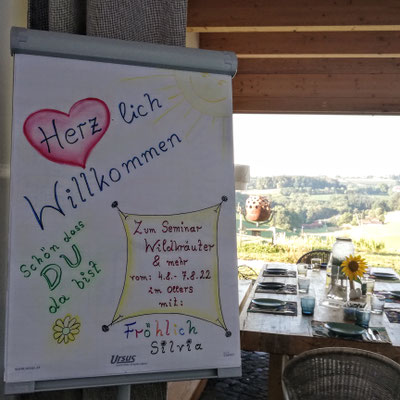 Herzlich
Willkommen
Schön dass
DU
da bist
Zum Seminar
Wildkräuter
& mehr
vom: 4.8.- 7.8.22
im Otters
mit:
Fröhlich
Silvia
Ursus